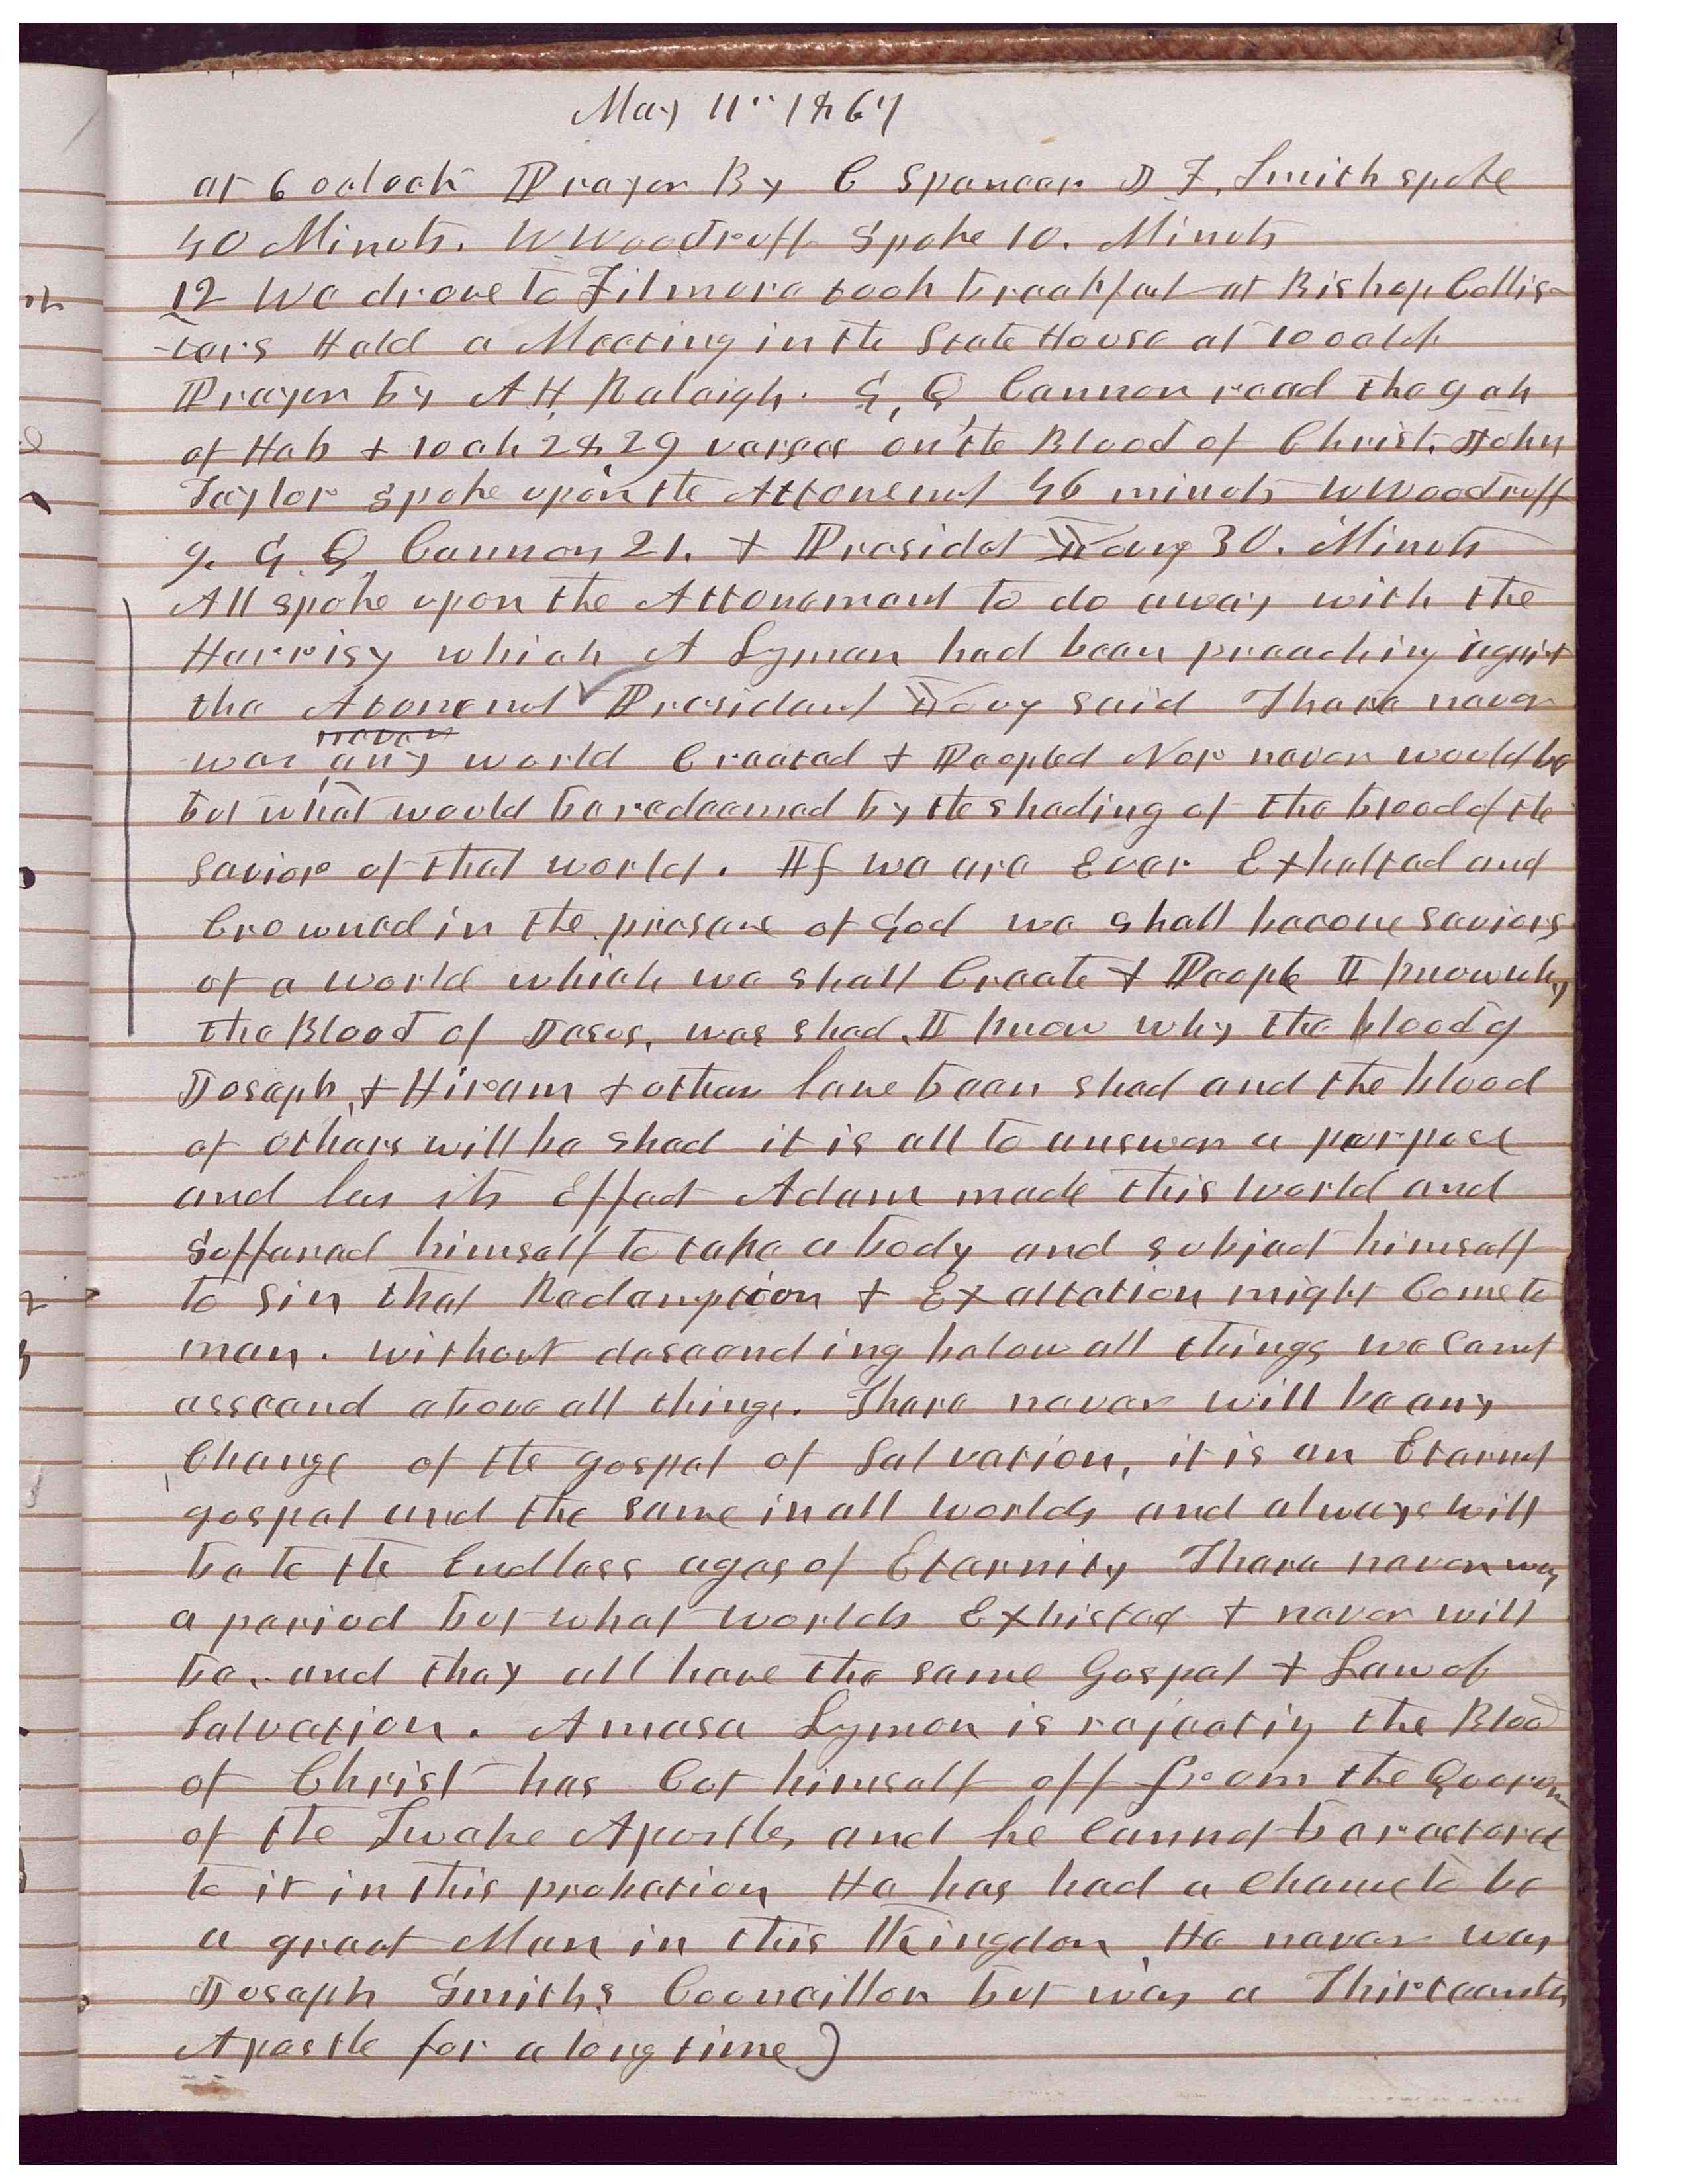 May 11th 1867
at 6 oclock Prayer By C Spencer J F. Smith spoke
40 Minuts. W Woodruff Spoke 10. Minuts
12 We drove to Filmore took breakfast at Bishop Collis-
-ters Held a Meeting in the State House at 10 oclck
Prayer by A H Raleigh. G, Q, Cannon read the 9 ch
of Heb + 10 ch 28, 29 verses on the Blood of Christ. John
Taylor spoke upon the Attonemt 46 minuts W Woodruff
9. G. Q. Cannon 21. + Presidet Young 30. Minuts
All spoke upon the Attonement to do away with the
Harrisy which A Lyman had been preaching against
the Atonement President Young said There never
never
was any world Created + Peopled Nor never would be
but what would be redeemed by the sheding of the blood of the
savior of that world. If we are Ever Exhalted and
Crowned in the presence of God we shall become saviors
of a world which we shall Create + People I know why
the Blood of Jesus. was shed. I know why the blood of
Joseph, + Hiram + others have been shed and the blood
of others will be shed it is all to answer a purpose
and has its Effect Adam made this world and
Suffered himself to take a body and subject himself
to sin that Redemption + Exaltation might Come to
man. without descending below all things we cannot
asscend above all things. There never will be any
Change of the gospel of Salvation, it is an Eternal
gospel and the same in all worlds and always will
be to the Endless ages of Eternity There never was
a period but what worlds Exhisted + never will
be. and they all have the same Gospel + Law of
Salvation. Amasa Lyman is rejecting the Blood
of Christ has Cut himself off from the Quorum
of the Twelve Apostles and he cannot be restored
to it in this probation He has had a chance to be
a great Man in this Kingdom He never was
Joseph Smiths Councillor but was a Thirteenth
Apostle for a long time)